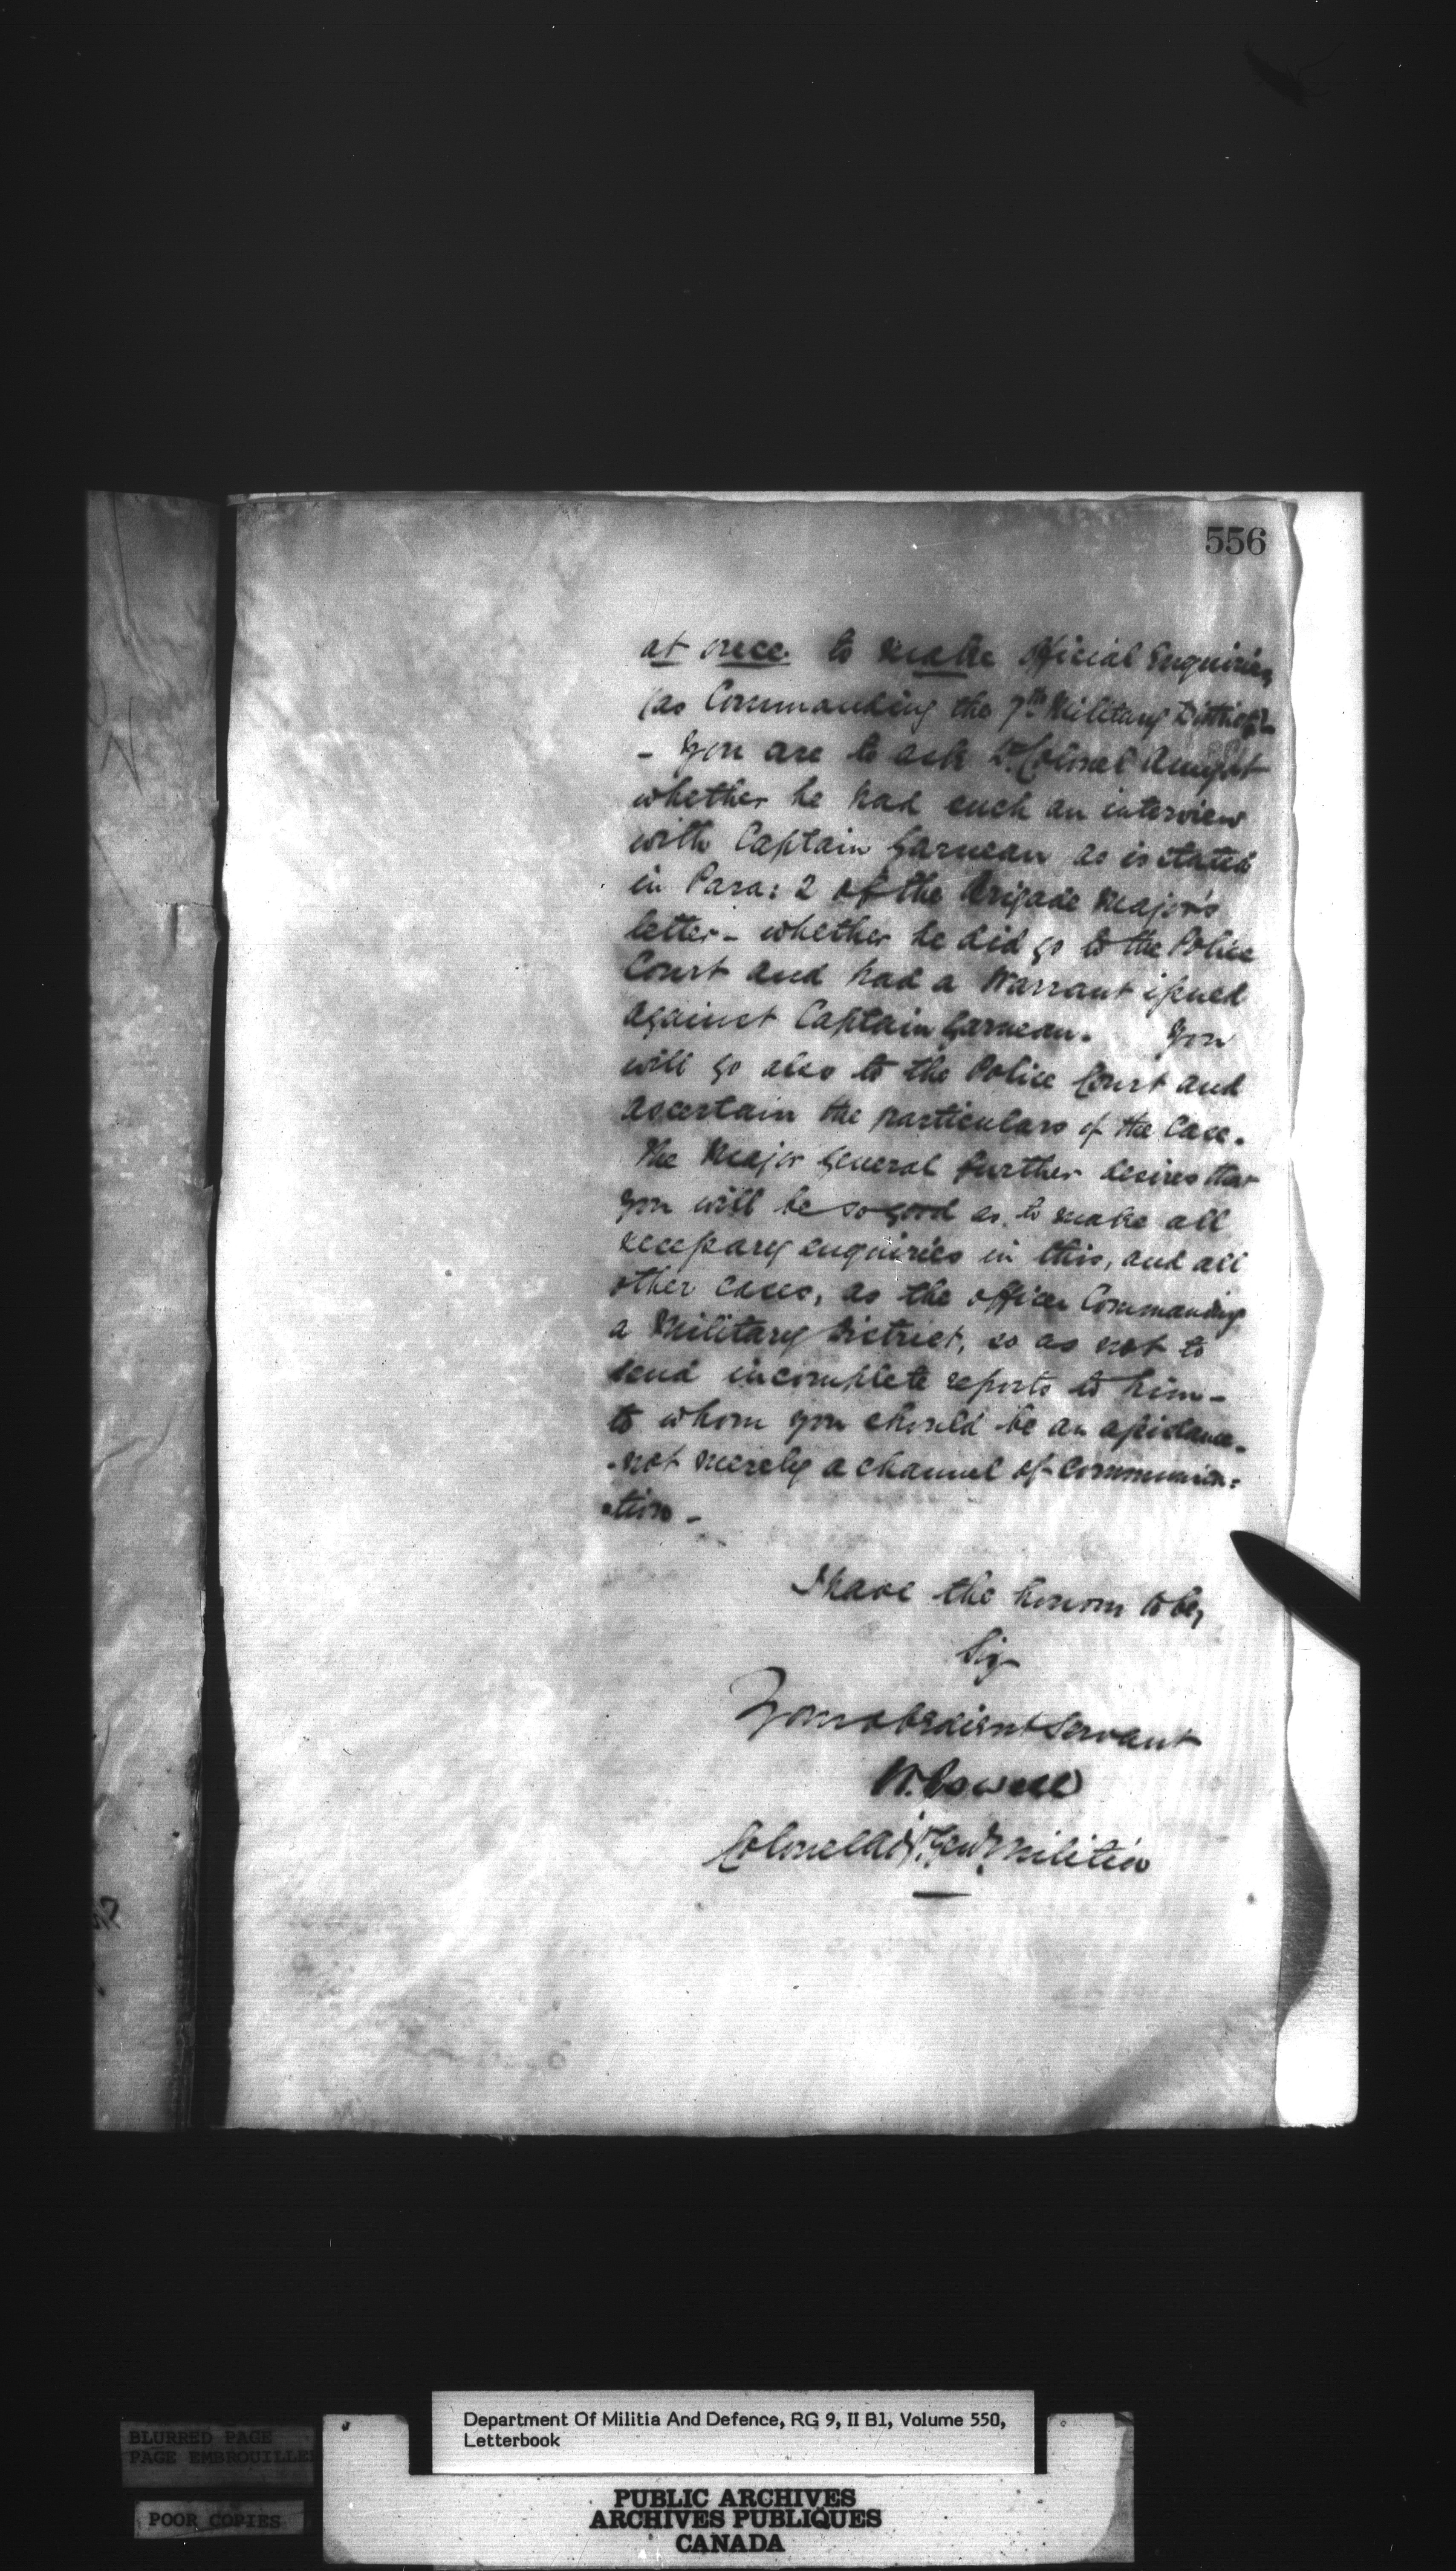 556
at once to make official Enquiries
(as Commanding the 7th Military District)-
- You are to ask Lt. Colonel Amyot
whether he had such an interview
with Captain Garneau as is stated
in Para: 2 of the Brigade Major's
letter - whether he did go to the Police
Court and had a Warrant issued
against Captain Garneau. You
will go also to the Police Court and
ascertain the particulars of the Case.
The Major General further desires that
you will be so good as to make all
necessary enquiries in this, and all
other cases, as the officer Commanding
a Military District, so as not to
send incomplete reports to him -
to whom you should be an assistance -
- not merely a channel of Communica:
:tion -
I have the honour to be,
Sir
Your obedient Servant
W. Powell
Colonel Adjt. Genl. Militia
BLURRED PAGE
PAGE EMBROUILLE
POOR COPIES
Department Of Militia And Defence, RG 9, II B1, Volume 550,
Letterbook
PUBLIC ARCHIVES
ARCHIVES PUBLIQUES
CANADA